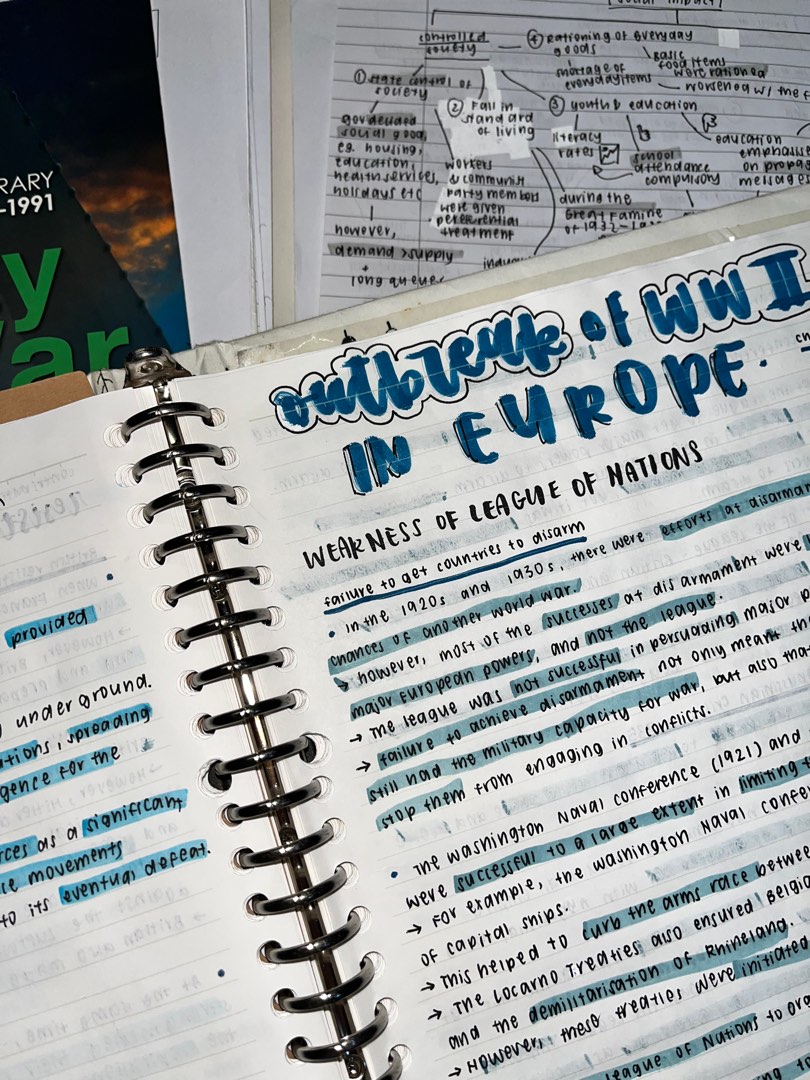 RARY
-1991
y
ar
social impact
controlled
society
④ rationing of everyday
goods
shortage of
everyday items
basic
food items
were rationed
worsened w/ the f
① state control of
society
gov decided
social good,
eg. housing,
education,
health services,
holidays etc
however,
demand > supply
long queue
② Fall in
standard
of living
workers
& communist
party members
were given
preferential
treatment
③ youth & education
literacy
rates
school
attendance
compulsory
education
emphasise
on propag
messages
during the
Great Famine
of 1932-
indu
outbreak of WW II
IN EUROPE.
WEAKNESS OF LEAGUE OF NATIONS
failure to get countries to disarm
• In the 1920s and 1930s, there were efforts at disarmam
chances of another world war.
→ however, most of the successes at disarmament were
major European powers, and not the league.
→ The league was not successful in persuading major p
→ failure to achieve disarmament not only meant th
still had the military capacity for war, but also that
stop them from engaging in conflicts.
• The Washington Naval Conference (1921) and
were successful to a large extent in limiting t
→ For example, the Washington Naval Confe
of capital ships.
→ This helped to curb the arms race betwe
→ The Locarno Treaties also ensured Belgia
and the demilitarisation of Rhineland.
→ However, these treaties were initiated
league of Nations to or
provided
under ground.
tions, spreading
gence for the
rces as a significant
ce movements
to its eventual defeat.